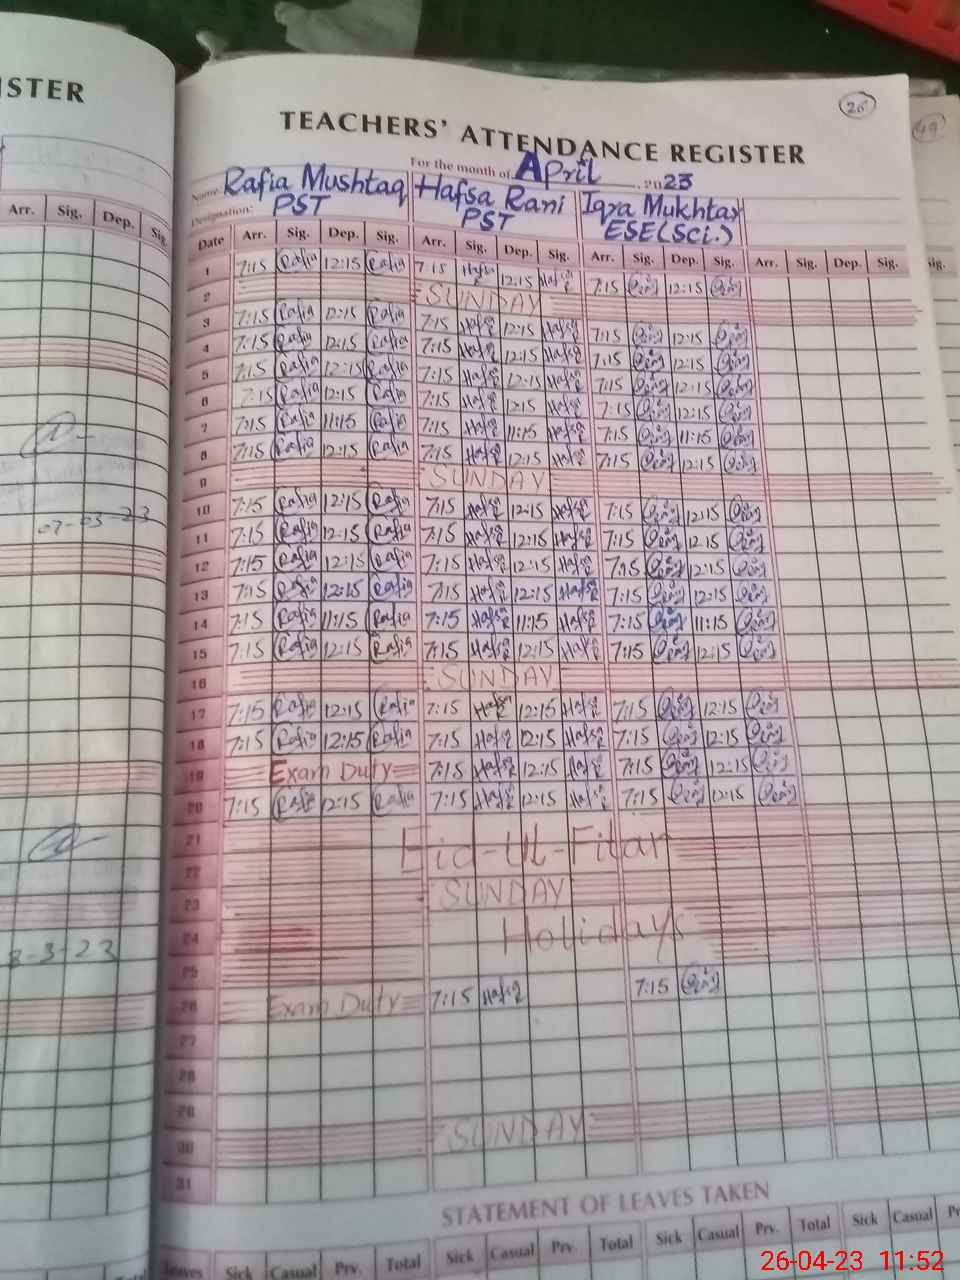 ISTER
Arr. Sig. Dep. Sig.
07-03-23
3-23
26
49
TEACHERS' ATTENDANCE REGISTER
For the month of April 2023
Name: Rafia Mushtaq Hafsa Rani Iqra Mukhtar
Designation: PST PST ESE (Sci.)
Date Arr. Sig. Dep. Sig. Arr. Sig. Dep. Sig. Arr. Sig. Dep. Sig. Arr. Sig. Dep. Sig.
1 7:15 Rafia 12:15 Rafia 7:15 Hafsa 12:15 Hafsa 7:15 12:15
2 SUNDAY
3 7:15 Rafia 12:15 Rafia 7:15 Hafsa 12:15 Hafsa 7:15 12:15
4 7:15 Rafia 12:15 Rafia 7:15 Hafsa 12:15 Hafsa 7:15 12:15
5 7:15 Rafia 12:15 Rafia 7:15 Hafsa 12:15 Hafsa 7:15 12:15
6 7:15 Rafia 12:15 Rafia 7:15 Hafsa 12:15 Hafsa 7:15 12:15
7 7:15 Rafia 11:15 Rafia 7:15 Hafsa 11:15 Hafsa 7:15 11:15
8 7:15 Rafia 12:15 Rafia 7:15 Hafsa 12:15 Hafsa 7:15 12:15
9 SUNDAY
10 7:15 Rafia 12:15 Rafia 7:15 Hafsa 12:15 Hafsa 7:15 12:15
11 7:15 Rafia 12:15 Rafia 7:15 Hafsa 12:15 Hafsa 7:15 12:15
12 7:15 Rafia 12:15 Rafia 7:15 Hafsa 12:15 Hafsa 7:15 12:15
13 7:15 Rafia 12:15 Rafia 7:15 Hafsa 12:15 Hafsa 7:15 12:15
14 7:15 Rafia 11:15 Rafia 7:15 Hafsa 11:15 Hafsa 7:15 11:15
15 7:15 Rafia 12:15 Rafia 7:15 Hafsa 12:15 Hafsa 7:15 12:15
16 SUNDAY
17 7:15 Rafia 12:15 Rafia 7:15 Hafsa 12:15 Hafsa 7:15 12:15
18 7:15 Rafia 12:15 Rafia 7:15 Hafsa 12:15 Hafsa 7:15 12:15
19 Exam Duty 7:15 Hafsa 12:15 Hafsa 7:15 12:15
20 7:15 Rafia 12:15 Rafia 7:15 Hafsa 12:15 Hafsa 7:15 12:15
21 Eid-Ul-Fitar
22
23 SUNDAY
24 Holidays
25
26 Exam Duty 7:15 Hafsa 7:15
27
28
29
30 SUNDAY
31
STATEMENT OF LEAVES TAKEN
Leaves Sick Casual Prv. Total Sick Casual Prv. Total Sick Casual Prv. Total Sick Casual
26-04-23 11:52